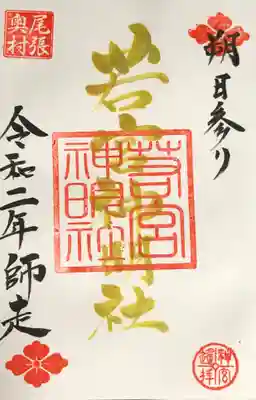 朔日参り
若宮神明社
若宮
神明社
尾張
奥村
令和二年師走